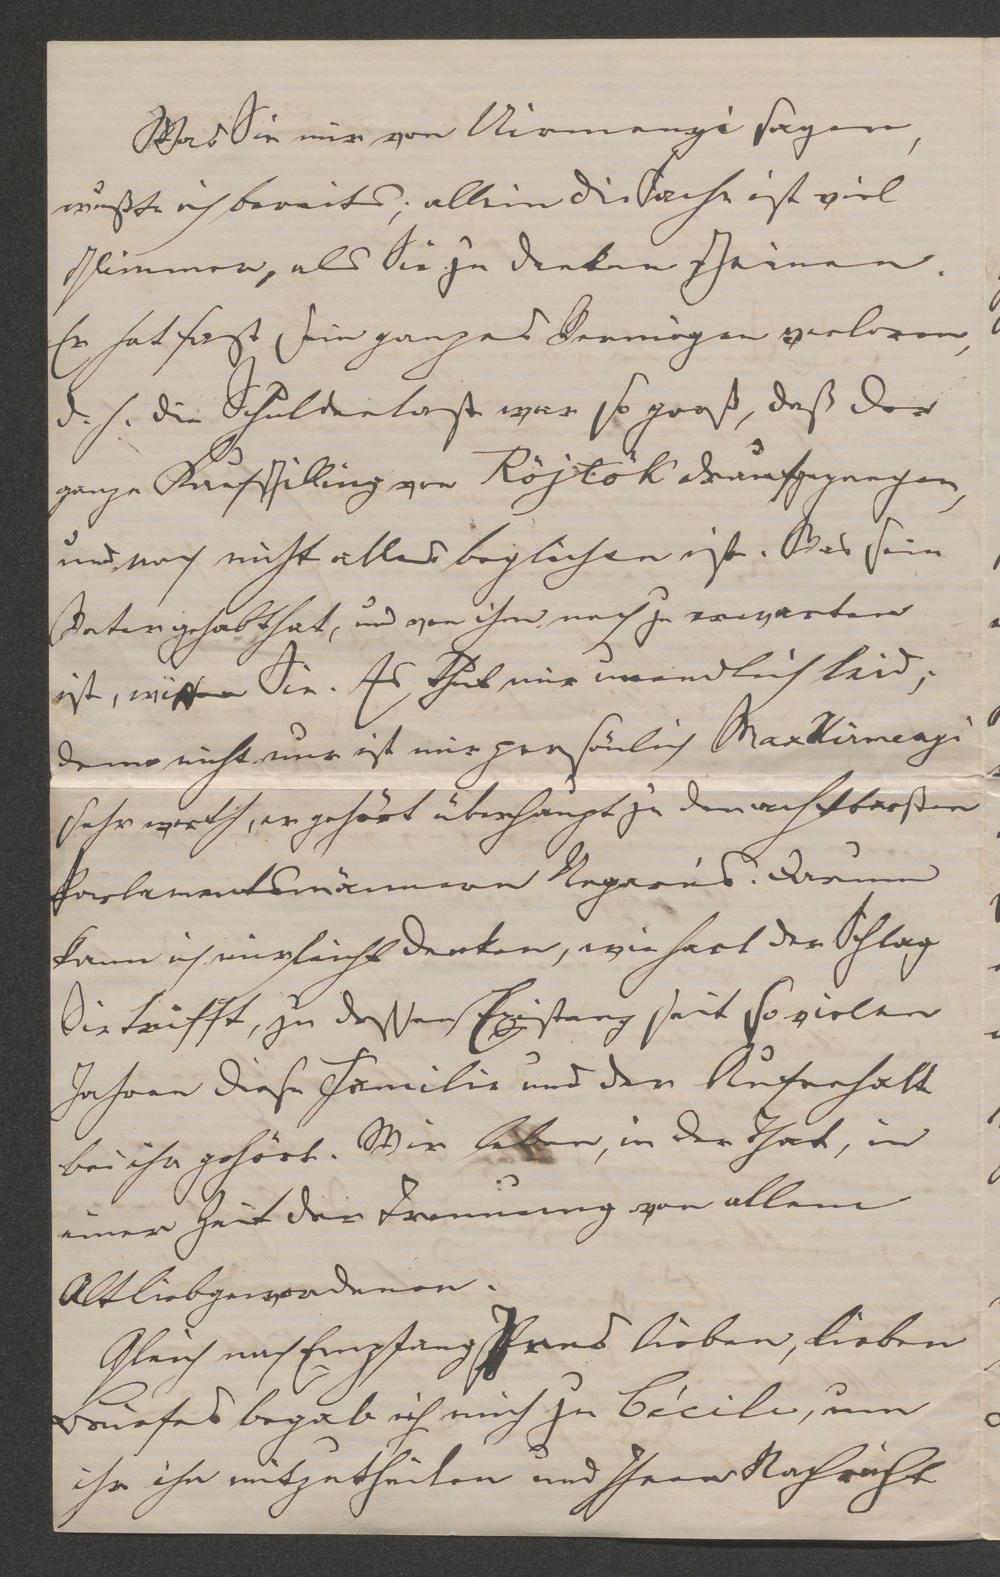 Was Sie mir von Uirmenyi sagen,
wußte ich bereits; allein die Sache ist viel
schlimmer, als Sie zu denken scheinen.
Er hat fast sein ganzes Vermögen verloren,
d. h. die Schuldenlast war so groß, daß der
ganze Kaufschilling von Röjtök draufgegangen,
und noch nicht alles beglichen ist. Was sein
Vater gehabt hat, und von ihm noch zu erwarten
ist, wissen Sie. Es thut mir unendlich leid;
denn nicht nur ist mir persönlich Max Uirmenyi
sehr werth, er gehört überhaupt zu den achtbarsten
Parlamentsmännern Ungarns. Darum
kann ich mir leicht denken, wie hart der Schlag
Sie trifft, zu dessen Existenz seit so vielen
Jahren diese Familie und der Aufenthalt
bei ihr gehört. Wir leben, in der That, in
einer Zeit der Trennung von allem
Altliebgewordenen.
Gleich nach Empfang Ihres lieben, lieben
Briefes begab ich mich zu Cécile, um
ihr ihn mitzutheilen und Ihrer Nachricht